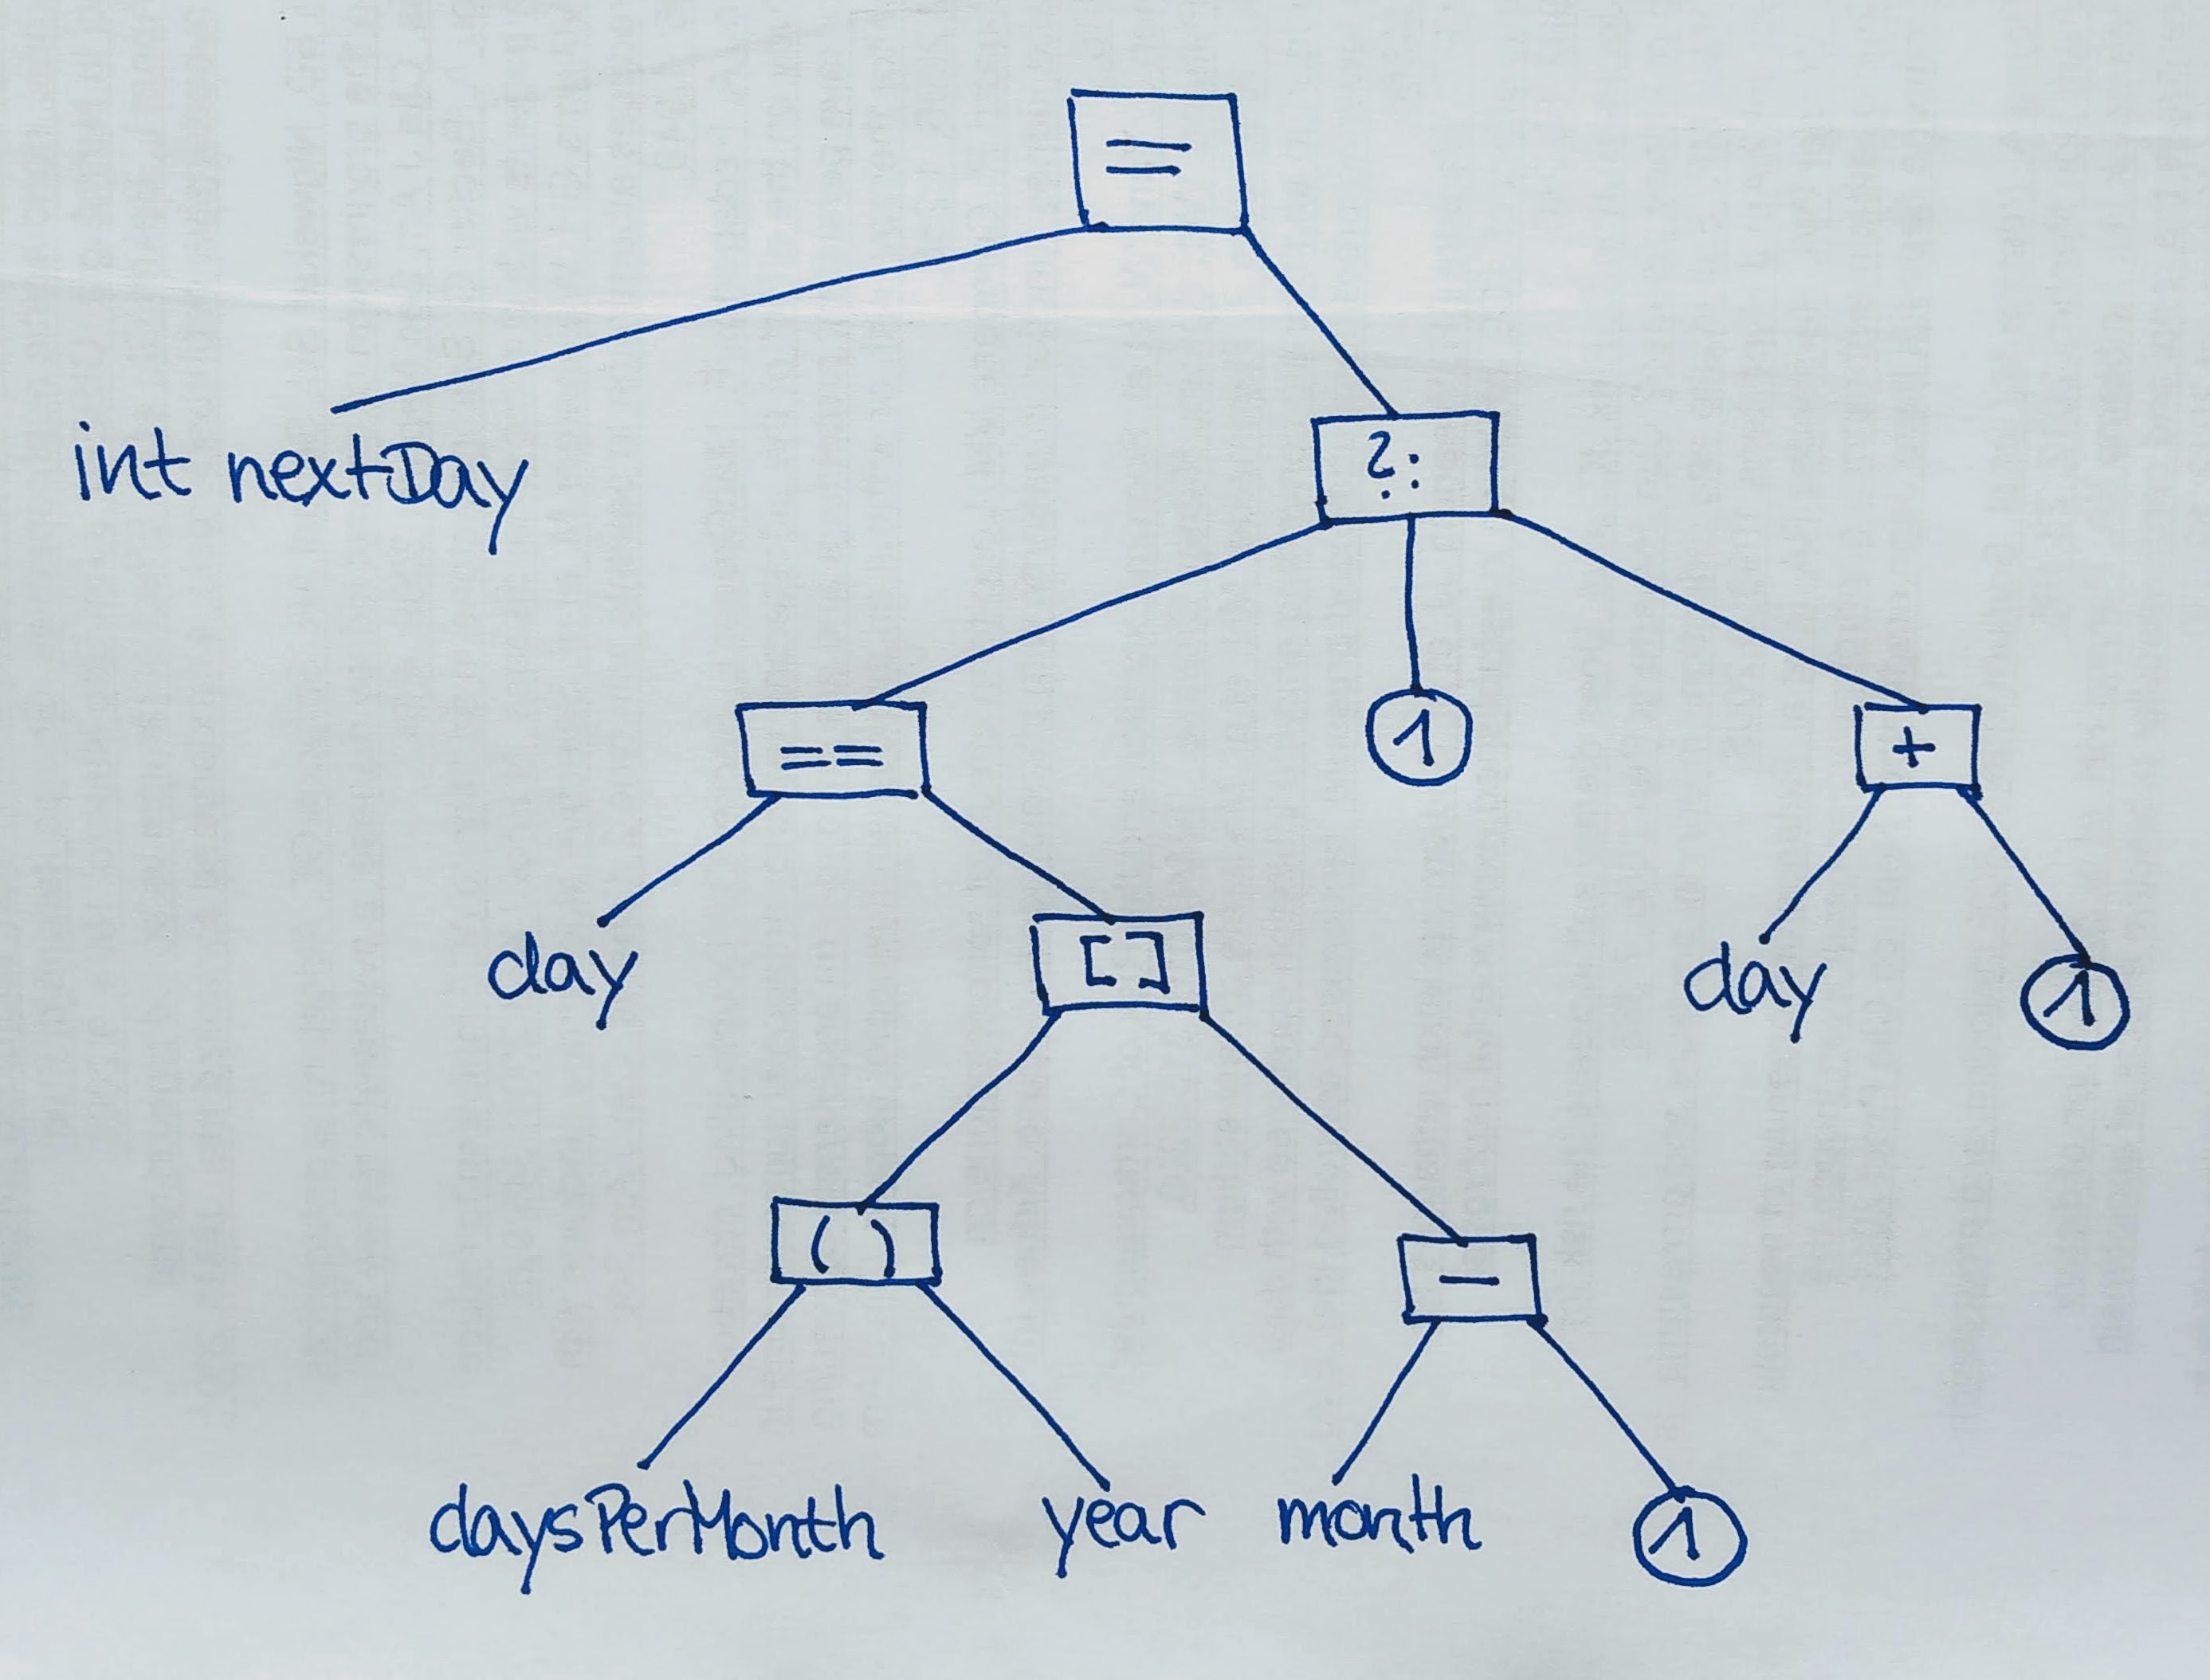 =
int nextDay
?:
==
1
+
day
[ ]
day
1
( )
-
daysPerMonth year month 1